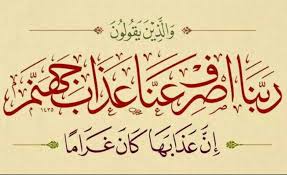 وَالَّذِينَ يَقُولُونَ
رَبَّنَا اصْرِفْ عَنَّا عَذَابَ جَهَنَّمَ
إِنَّ عَذَابَهَا كَانَ غَرَامًا